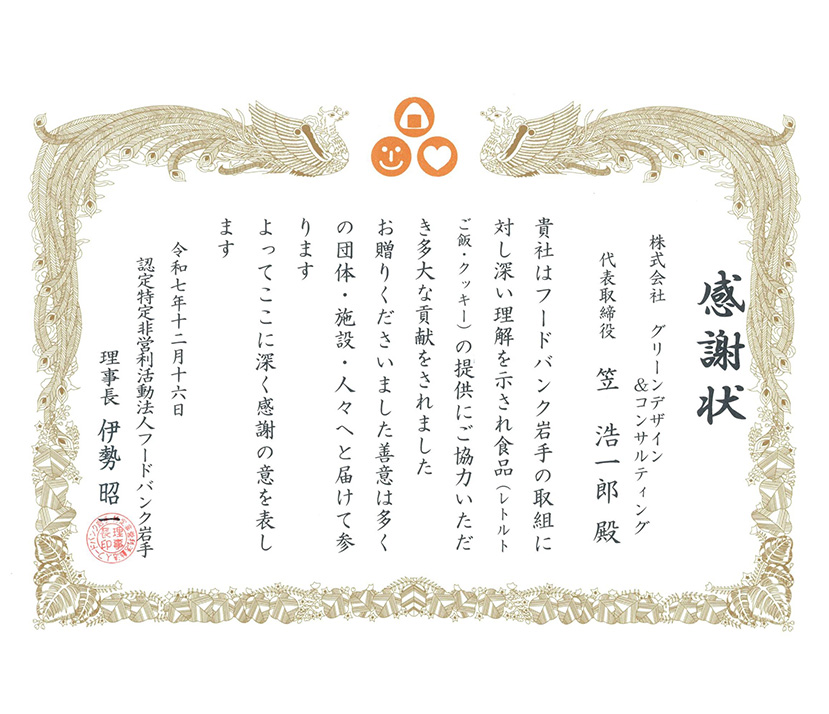 感謝状
株式会社 グリーンデザイン
&コンサルティング
代表取締役 笠 浩一郎 殿
貴社はフードバンク岩手の取組に
対し深い理解を示され食品（レトルト
ご飯・クッキー）の提供にご協力いただ
き多大な貢献をされました
お贈りくださいました善意は多く
の団体・施設・人々へと届けて参
ります
よってここに深く感謝の意を表し
ます
令和七年十二月十六日
認定特定非営利活動法人フードバンク岩手
理事長 伊勢 昭一
理事長印